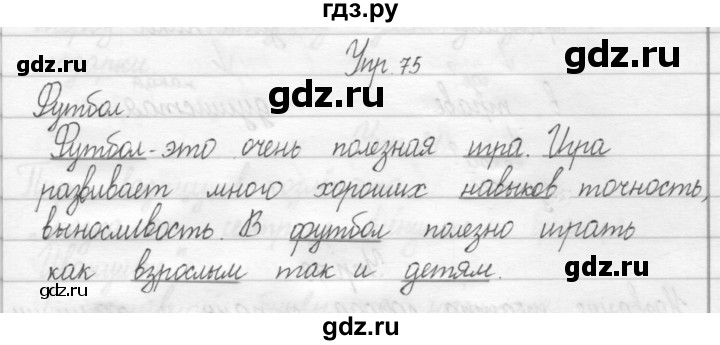 гдз.ру
gdz.ru
gdz.ru
Упр. 75
gdz.ru
Футбол
Футбол - это очень полезная игра. Игра
развивает много хороших навыков точность,
выносливость. В футбол полезно играть
как взрослым так и детям.
gdz.ru
gdz.ru
gdz.ru